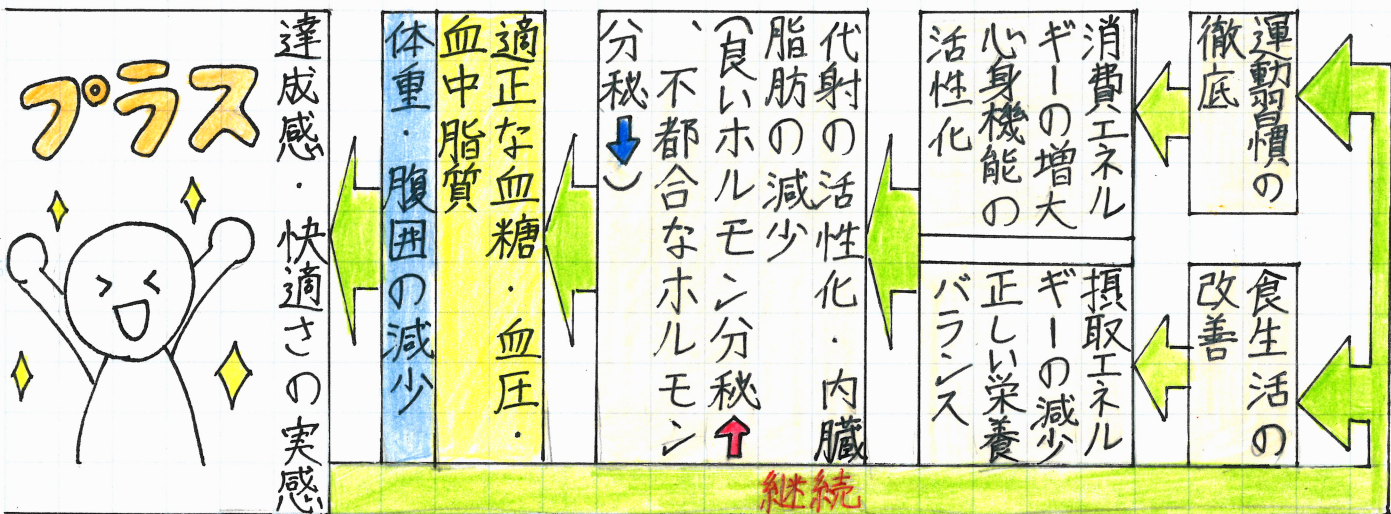 運動習慣の
徹底
食生活の
改善
消費エネル
ギーの増大
心身機能の
活性化
摂取エネル
ギーの減少
正しい栄養
バランス
代射の活性化・内臓
脂肪の減少
(良いホルモン分秘
、不都合なホルモン
分秘)
適正な血糖・血圧・
血中脂質
体重・腹囲の減少
達成感・快適さの実感
プラス
継続